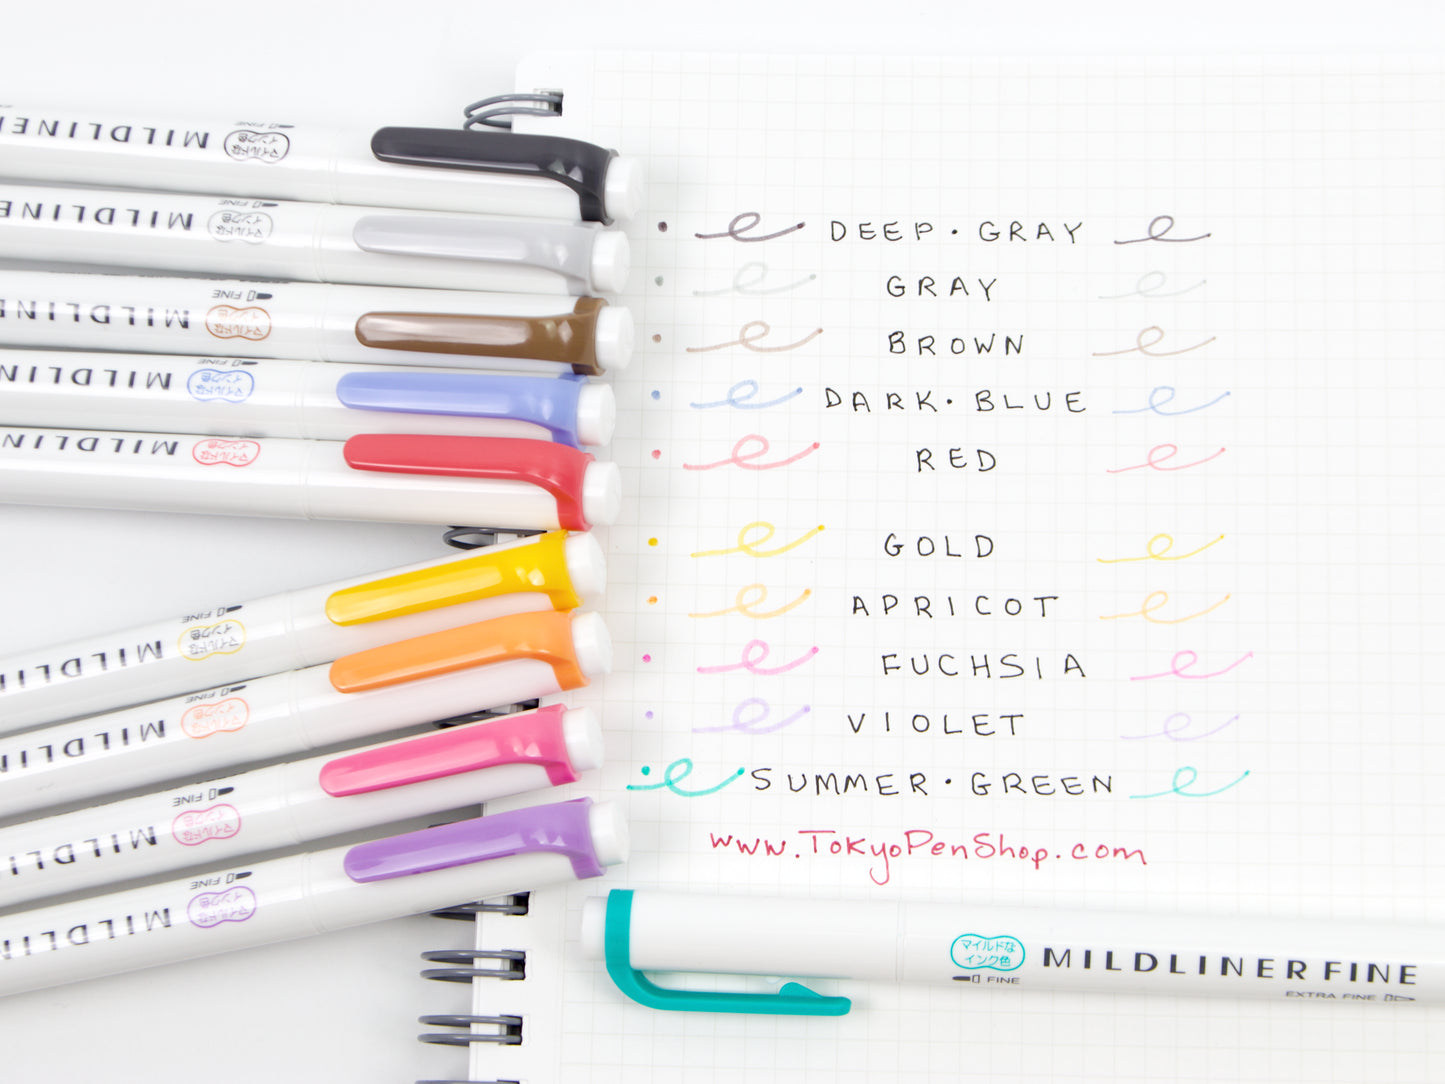 MILDLINER
マイルドな
インク色
FINE
MILDLINE
マイルドな
インク色
FINE
MILDLINE
マイルドな
インク色
FINE
MILDLIN
マイルドな
インク色
FINE
MILDLIN
マイルドな
インク色
MILDLIN
マイルドな
インク色
FINE
MILDLIN
マイルドな
インク色
FINE
MILDLI
マイルドな
インク色
FINE
MILDLIN
マイルドな
インク色
FINE
DEEP・GRAY
GRAY
BROWN
DARK・BLUE
RED
GOLD
APRICOT
FUCHSIA
VIOLET
SUMMER・GREEN
www.TokyoPenShop.com
マイルドな
インク色
MILDLINER FINE
FINE
EXTRA FINE